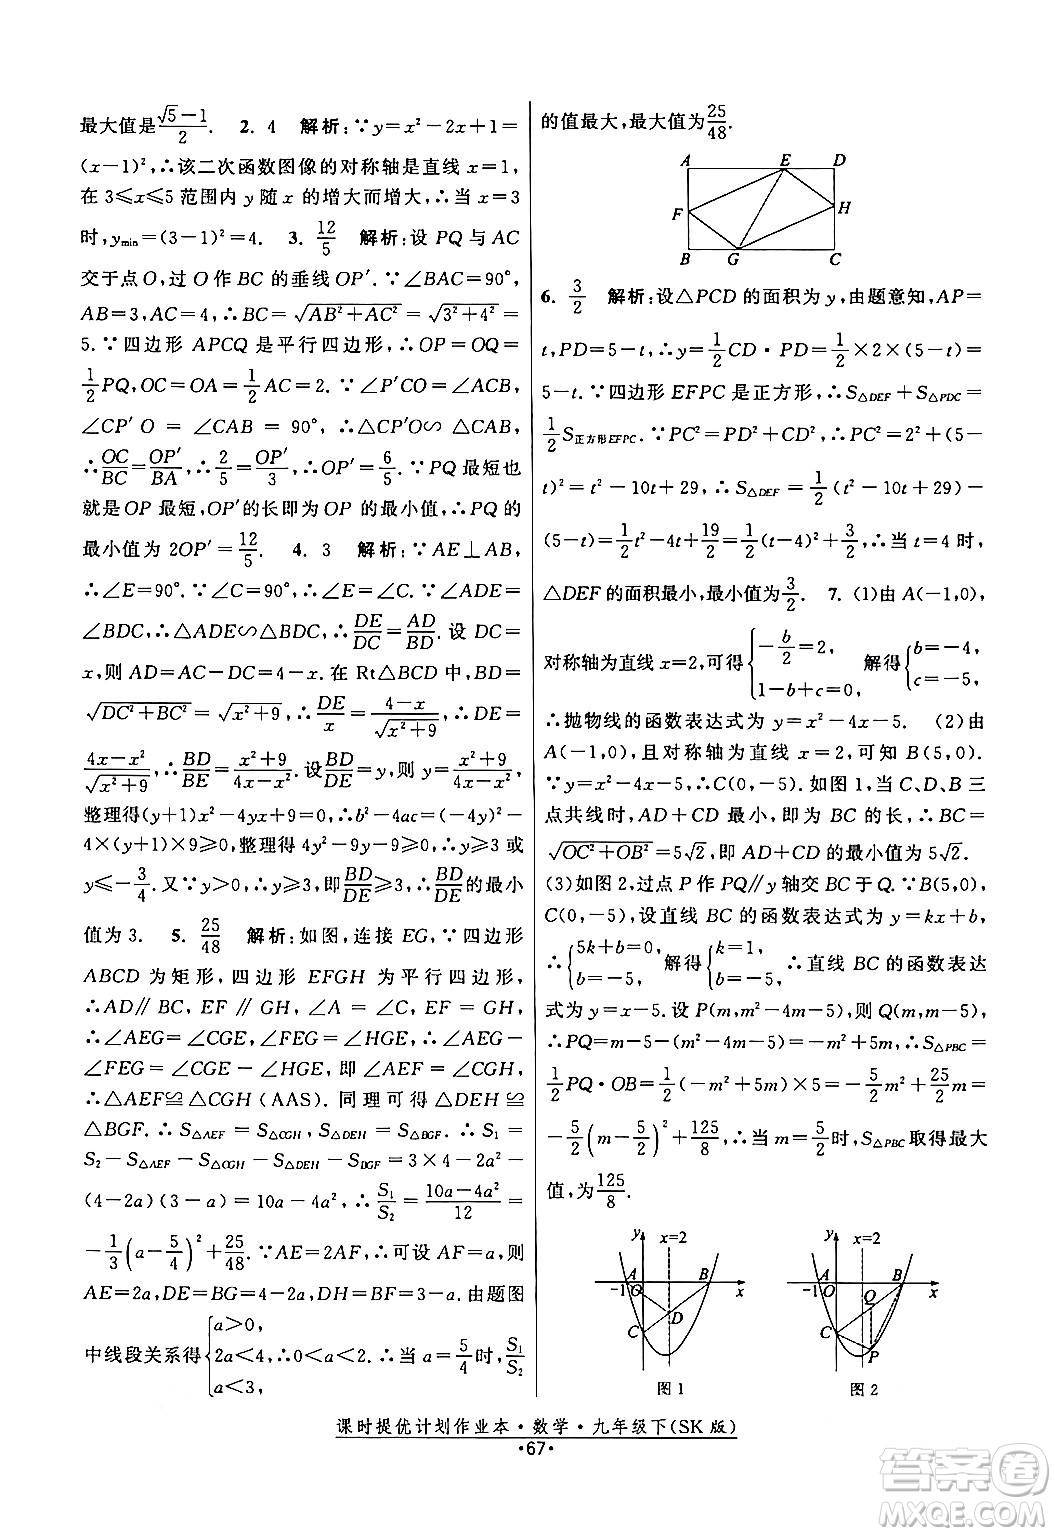 最大值是(√5-1)/2. 2. 4 解析:∵y=x²-2x+1=
(x-1)²,∴该二次函数图像的对称轴是直线 x=1,
在 3⩽x⩽5 范围内 y 随 x 的增大而增大,∴当 x=3
时,y_min=(3-1)²=4. 3. 12/5 解析:设 PQ 与 AC
交于点 O,过 O 作 BC 的垂线 OP′.∵∠BAC=90°,
AB=3,AC=4,∴BC=√(AB²+AC²)=√(3²+4²)=
5.∵四边形 APCQ 是平行四边形,∴OP=OQ=
1/2 PQ,OC=OA=1/2 AC=2.∵∠P′CO=∠ACB,
∠CP′O=∠CAB=90°,∴△CP′O∽△CAB,
∴OC/BC=OP′/BA,∴2/5=OP′/3,∴OP′=6/5.∵PQ 最短也
就是 OP 最短,OP′的长即为 OP 的最小值,∴PQ 的
最小值为 2OP′=12/5. 4. 3 解析:∵AE⊥AB,
∴∠E=90°.∵∠C=90°,∴∠E=∠C.∵∠ADE=
∠BDC,∴△ADE∽△BDC,∴DE/DC=AD/BD.设 DC=
x,则 AD=AC-DC=4-x.在 Rt△BCD 中,BD=
√(DC²+BC²)=√(x²+9),∴DE/x=(4-x)/√(x²+9),∴DE=
(4x-x²)/√(x²+9),∴BD/BE=(x²+9)/(4x-x²).设BD/DE=y,则y=(x²+9)/(4x-x²),
整理得(y+1)x²-4yx+9=0,∴b²-4ac=(-4y)²-
4×(y+1)×9⩾0,整理得 4y²-9y-9⩾0,∴y⩾3 或
y⩽-3/4.又∵y>0,∴y⩾3,即BD/DE⩾3,∴BD/DE的最小
值为 3. 5. 25/48 解析:如图,连接 EG,∵四边形
ABCD 为矩形,四边形 EFGH 为平行四边形,
∴AD∥BC,EF∥GH,∠A=∠C,EF=GH,
∴∠AEG=∠CGE,∠FEG=∠HGE,∴∠AEG-
∠FEG=∠CGE-∠HGE,即∠AEF=∠CGH,
∴△AEF≌△CGH(AAS).同理可得△DEH≌
△BGF.∴S△AEF=S△CGH,S△DEH=S△BGF,∴S₁=
S₂-S△AEF-S△CGH-S△DEH-S△BGF=3×4-2a²-
(4-2a)(3-a)=10a-4a²,∴S₁/S₂=(10a-4a²)/12=
-1/3(a-5/4)²+25/48.∵AE=2AF,∴可设 AF=a,则
AE=2a,DE=BG=4-2a,DH=BF=3-a.由题图
中线段关系得{a>0, 2a<4, a<3, ∴0<a<2.∴当 a=5/4时,S₁/S₂
的值最大,最大值为25/48.
A E D
F H
B G C
6. 3/2 解析:设△PCD 的面积为 y,由题意知,AP=
t,PD=5-t,∴y=1/2 CD·PD=1/2×2×(5-t)=
5-t.∵四边形 EFPC 是正方形,∴S△DEF+S△PDC=
1/2 S正方形EFPC.∵PC²=PD²+CD²,∴PC²=2²+(5-
t)²=t²-10t+29,∴S△DEF=1/2(t²-10t+29)-
(5-t)=1/2 t²-4t+19/2=1/2(t-4)²+3/2,∴当 t=4 时,
△DEF 的面积最小,最小值为3/2. 7. (1)由 A(-1,0),
对称轴为直线 x=2,可得{-b/2=2, 1-b+c=0, 解得{b=-4, c=-5,
∴抛物线的函数表达式为 y=x²-4x-5. (2)由
A(-1,0),且对称轴为直线 x=2,可知 B(5,0).
∵y=x²-4x-5,∴C(0,-5).如图 1,当 C、D、B 三
点共线时,AD+CD 的长最小,即为 BC 的长,∴BC=
√(OC²+OB²)=5√2,即 AD+CD 的最小值为 5√2.
(3)如图 2,过点 P 作 PQ∥y 轴交 BC 于 Q.∵B(5,0),
C(0,-5),设直线 BC 的函数表达式为 y=kx+b,
∴{5k+b=0, b=-5, 解得{k=1, b=-5, ∴直线 BC 的函数表达
式为 y=x-5.设 P(m,m²-4m-5),则 Q(m,m-5),
∴PQ=m-5-(m²-4m-5)=-m²+5m,∴S△PBC=
1/2 PQ·OB=1/2(-m²+5m)×5=-5/2 m²+25/2 m=
-5/2(m-5/2)²+125/8,∴当 m=5/2时,S△PBC取得最大
值,为125/8.
y x=2 A B -1 O x D C 图 1
y x=2 A B -1 O x Q C P 图 2
课时提优计划作业本·数学·九年级下(SK 版)
·67·
答案圈
MXQE.COM